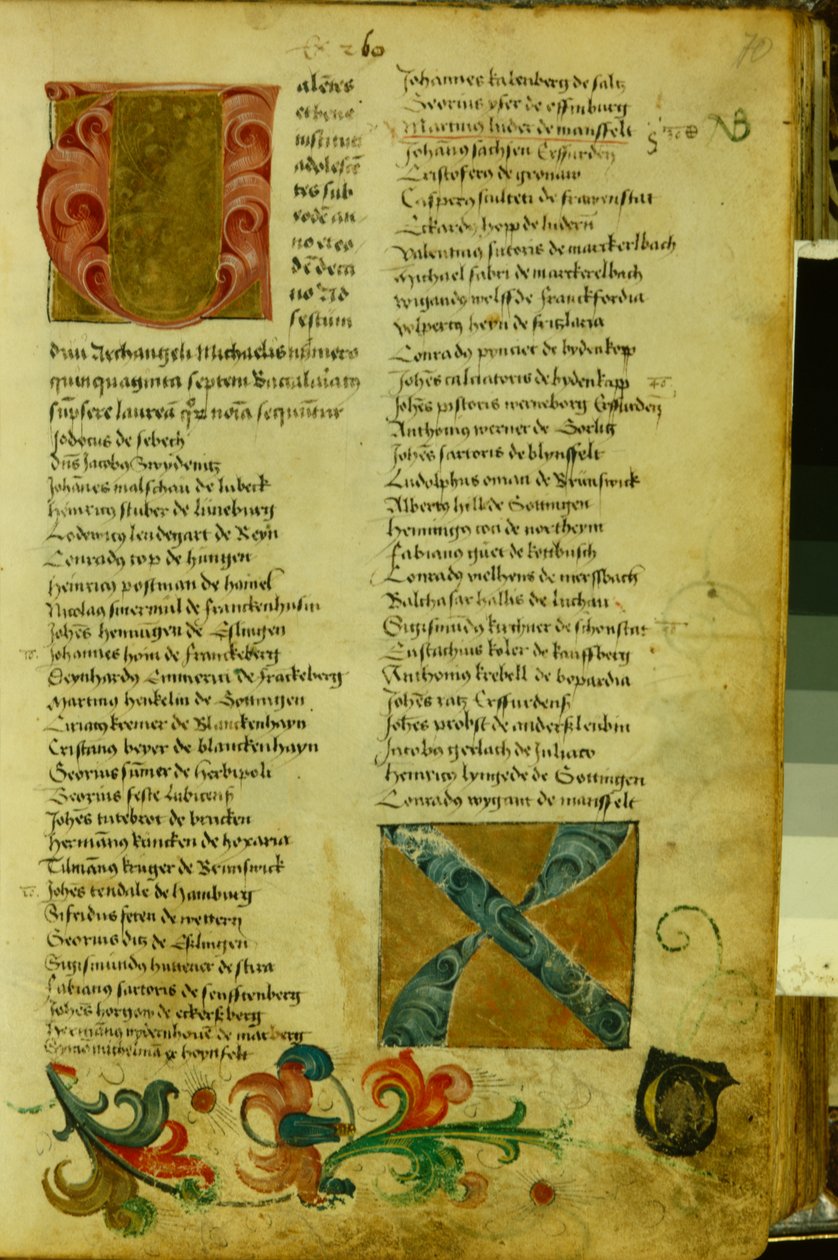 260
70
Valentes
et bene
instituti
adolescē
tes sub
eodē an
no circa
dē
sestum
diui Archangeli Michaelis numero
quinquaginta septem Baccalariatꝰ
sūpsere laureā qꝝ noīa sequūtur
Jodocus de sebech
dn̄s Jacobꝰ
Johānes malschau de lubeck
Heinricꝰ stuber de luneburg
Lodewicꝰ lendegart de Reyn
Conradꝰ top de hungen
Heinricꝰ postman de hamel
Nicolaꝰ de franckenhusin
Johēs Henningen de Eslingen
Johannes hoin de franckeberg
Reynhardꝰ Emmerici de frackeberg
Martinꝰ henkelin de Gottingen
Ciriacꝰ kremer de Blanckenhayn
Cristanꝰ beyer de blanckenhayn
Georius sūmer de herbipoli
Georius feste
Johēs tutebrot de brucken
Hermānꝰ kuncken de hoxaria
Tilmānꝰ kruger de Brunswick
Johēs tendale de hamburg
Sifridus feten de wetter
Georius ditz de Eslingen
Sigismundꝰ huttener de stira
Fabianꝰ sartoris de senfftenberg
Johēs horgow de eckerßberg
Hermānꝰ de marberg
Johannes kalenberg de saltz
Georius yser de
Martinꝰ luder de mansfelt
Johānꝰ sachsen Erffurden
Cristoferꝰ de gronaw
Casperꝰ sculteti de frawenstat
Eckardꝰ hepp de
Valentinꝰ sutoris de marckerlbach
Michael fabri de marckerelbach
wigandꝰ wolff de franckfordia
volpertꝰ heyn de fritzlaria
Conradꝰ de bydenkapp
Johēs calciatoris de bydenkapp
Johēs pistoris werneborg Erffurden
Anthoniꝰ werner de Gorlitz
Johēs sartoris de
Ludolphus oman de Brunswick
Albertꝰ hill de Gottingen
Henningꝰ de northeym
Fabianꝰ de kottbusch
Conradꝰ vielhens de merssbach
Balthasar hallis de luchau
Sigismūdꝰ kirchner de schonstat
Eustachius koler de kaufsberg
Anthoniꝰ krebell de bopardia
Johēs ratz Erffurdenß
Johēs probst de anderßleubin
Jacobꝰ gerlach de Juliaco
Heinricꝰ lyngede de Gottingen
Conradꝰ wygant de mansfelt